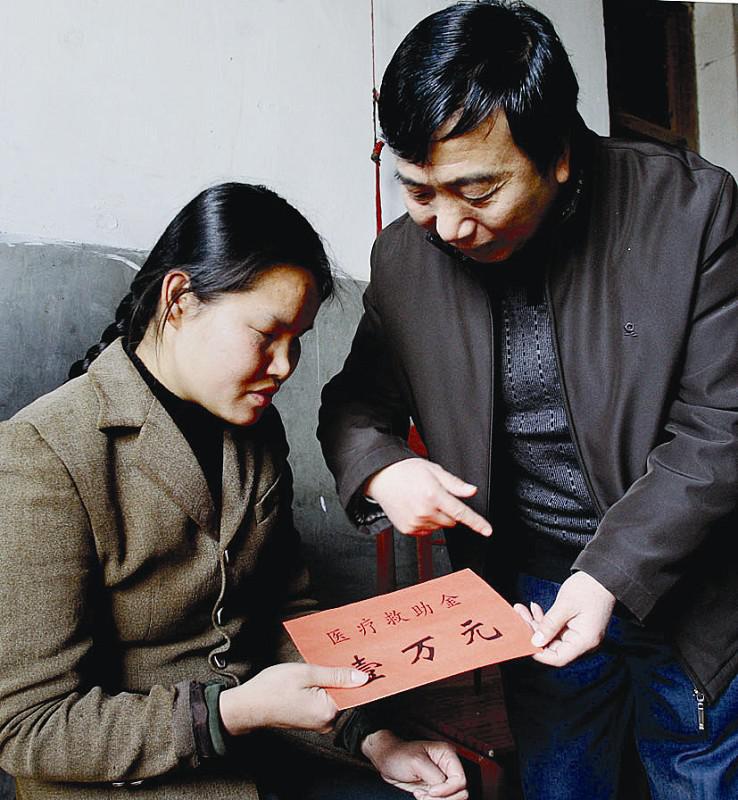 医疗救助金
壹万元